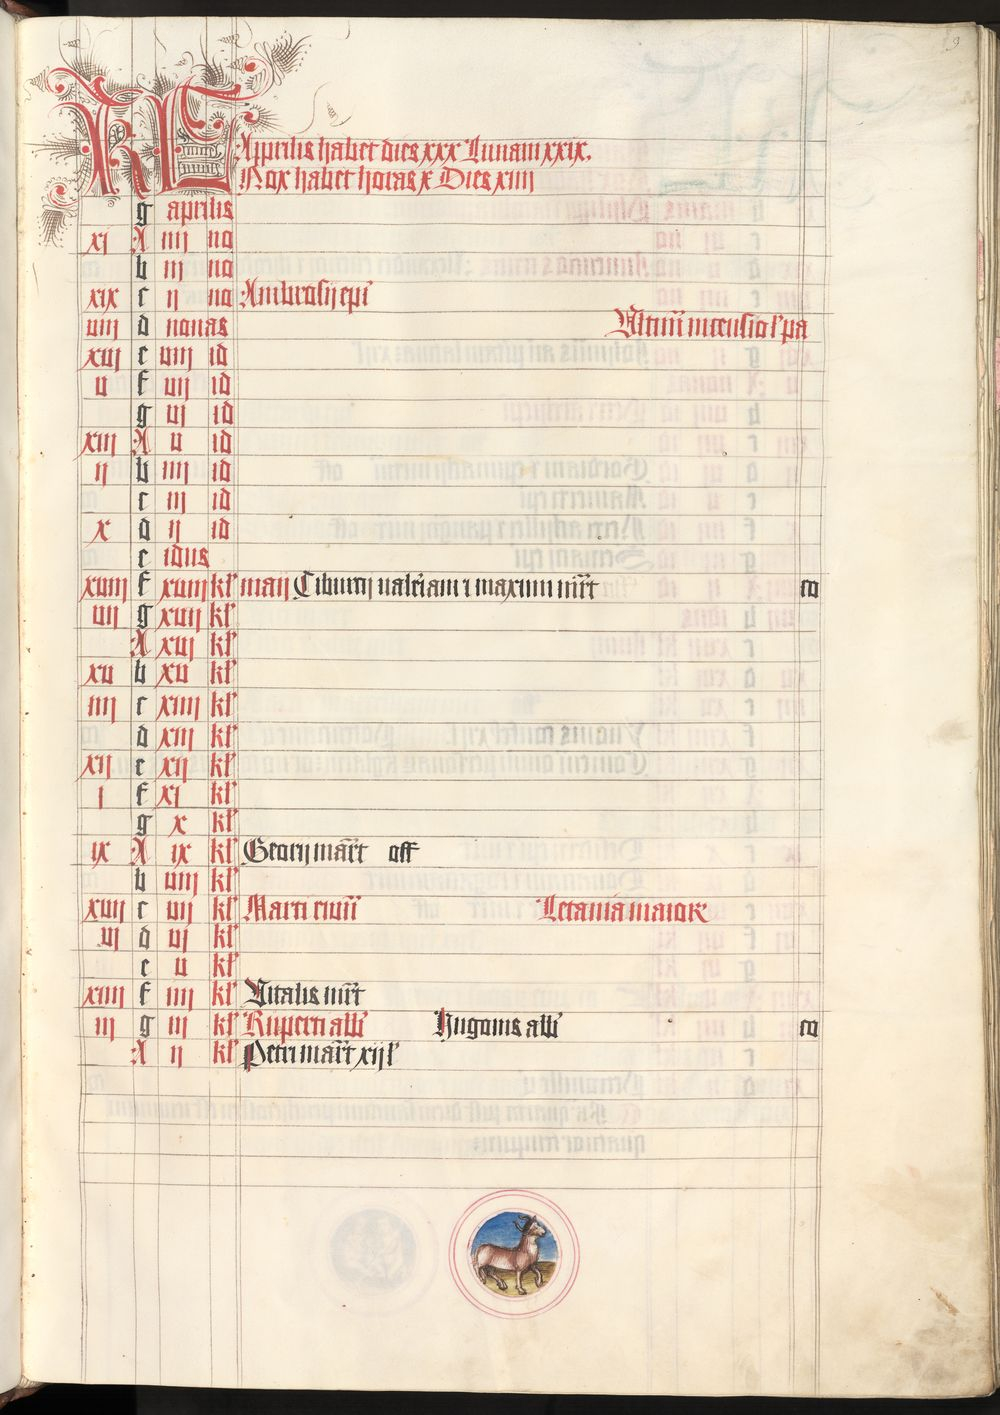 9
KL Aprilis habet dies xxx Lunam xxix.
Nox habet horas x Dies xiiii
g aprilis
xi A iiii no
b iii no
xix c ii no Ambrosij epi
viii d nonas Ultimū incensio l' pa
xvi e viii id
v f vii id
g vi id
xiii A v id
ii b iiii id
c iii id
x d ii id
e idus
xviii f xviii kl' maij Tiburtij valeriani ⁊ maximi mr̄t co
vii g xvii kl'
A xvi kl'
xv b xv kl'
iiii c xiiii kl'
d xiii kl'
xii e xii kl'
i f xi kl'
g x kl'
ix A ix kl' Georij mār̄t off
b viii kl'
xvii c vii kl' Marci euūū Letania maior
vi d vi kl'
e v kl'
xiiii f iiii kl' Vitalis mr̄t
iii g iii kl' Ruperti abb' Hugonis abb' co
A ii kl' Petri mār̄t xij l'